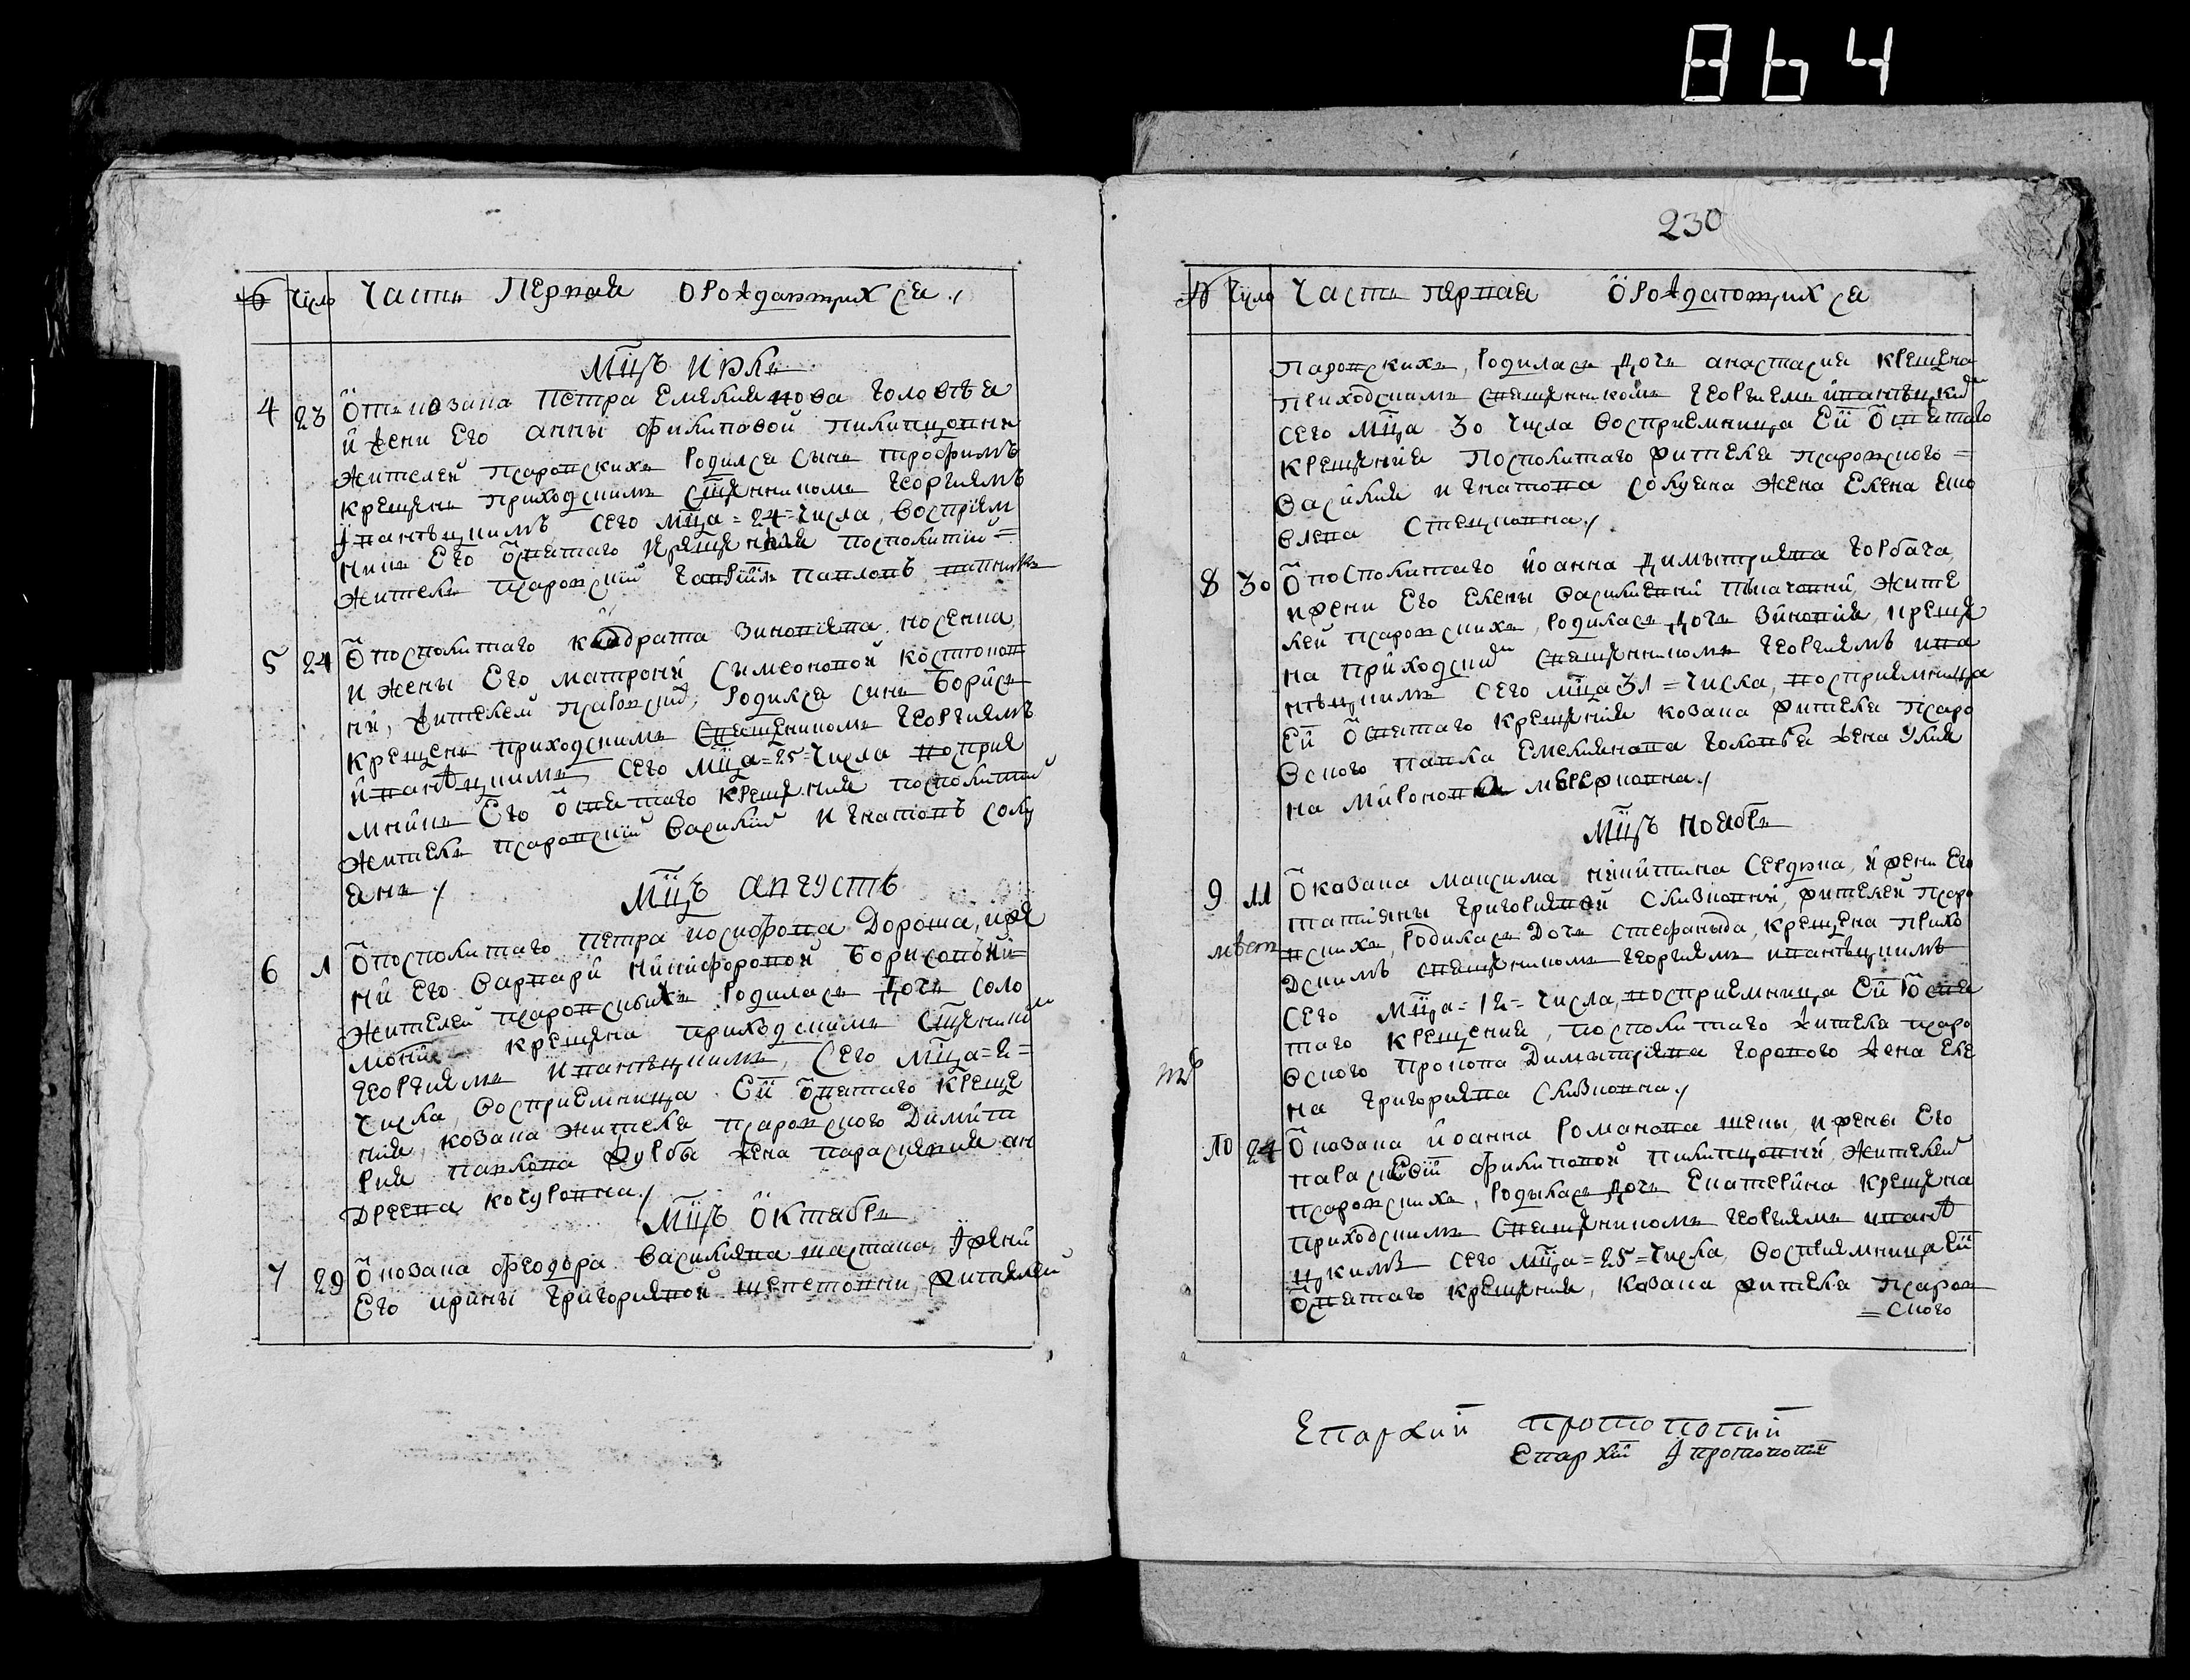 864
230
№ Число Часть Первая О Рождающихся
Мцъ Июль
4 23 Ѿ козака Петра Емелианова Головѣя
и жени Его Анны Филиповой Никитовны
жителей псаровских родился сынъ Трофимъ
крещенъ приходским сщенником Георгиемъ
Іванѣцкимъ сего мца =24= числа, восприем
никъ Его Ѿ святаго крещения посполитий =
житель псаровский Гаврііл Павловъ
5 24 Ѿ посполитаго Кондрата Зиновіева
и жены Его Матроны Сымеоновой
ни, жителей псаровских, родился синъ Борисъ
крещенъ приходскимъ священникомъ Георгиемъ
Иванѣцкимъ, сего мца =25= числа восприе
мникъ Его Ѿ святаго крещения посполитий
житель псаровский Василий Игнатовъ Солу
янъ
Мцъ Августъ
6 1 Ѿ посполитаго Петра Иосифова Дороша, и же
ни Его Варвари Никифоровой Борисовни =
жителей псаровскихъ родилась дочь Соло
мония крещена приходскимъ сщенником
Георгиемъ Иванѣцкимъ, сего мца =2=
числа, восприемница Ей Ѿ святаго креще
ния, козака жителя псаровского Димит
рия Павлова жена Параскевия Ан
дреева
Мцъ Октябръ
7 29 Ѿ козака Феодора Василиева Шастака, и жени
Его Ирины Григориевой жителей
№ Число Часть первая О Рождающихся
Псаровскихъ, родилась дочь Анастасия крещена
приходскимъ священникомъ Георгиемъ Иванѣцким
сего мца 30 числа восприемница Ей Ѿ святаго
крещения посполитаго жителя псаровского =
Василия Игнатова Солуяна жена Елена
влева
8 30 Ѿ посполитаго Иоанна Димитриева Горбача
и жени Его Елены Василиевни жите
лей псаровскихъ, родилась дочь Зиновия, креще
на приходским священникомъ Георгиемъ Ива
нѣцкимъ сего мца 31 = числа, восприемница
Ей Ѿ святаго крещения козака жителя псаро
вского Павла Емелианова Головѣя жена Улия
на Миронова
Мцъ Ноябръ
9 11 Ѿ козака Максима Никитина Сердюка, и жени Его
Татияны Григориевой жителей псаро
вскихъ, родилась дочь Стефанида, крещена прихо
дскимъ священникомъ Георгиемъ Иванѣцкимъ
сего мца =12= числа, восприемница Ей Ѿ свя
таго крещения, посполитаго жителя псаро
вского Прокопа Димытриева Горового жена Еле
на Григориева
10 24 Ѿ козака Иоанна Романова и жены Его
Параскевии Филиповой Никитовни жителей
псаровскихъ, родилась дочь Екатерина крещена
приходскимъ священникомъ Георгиемъ Иванѣ
цкимъ сего мца =25= числа, восприемница Ей
Ѿ святаго крещения, козака жителя псаров
= ского
Епархии протопопии
Епархіи І протопопіи